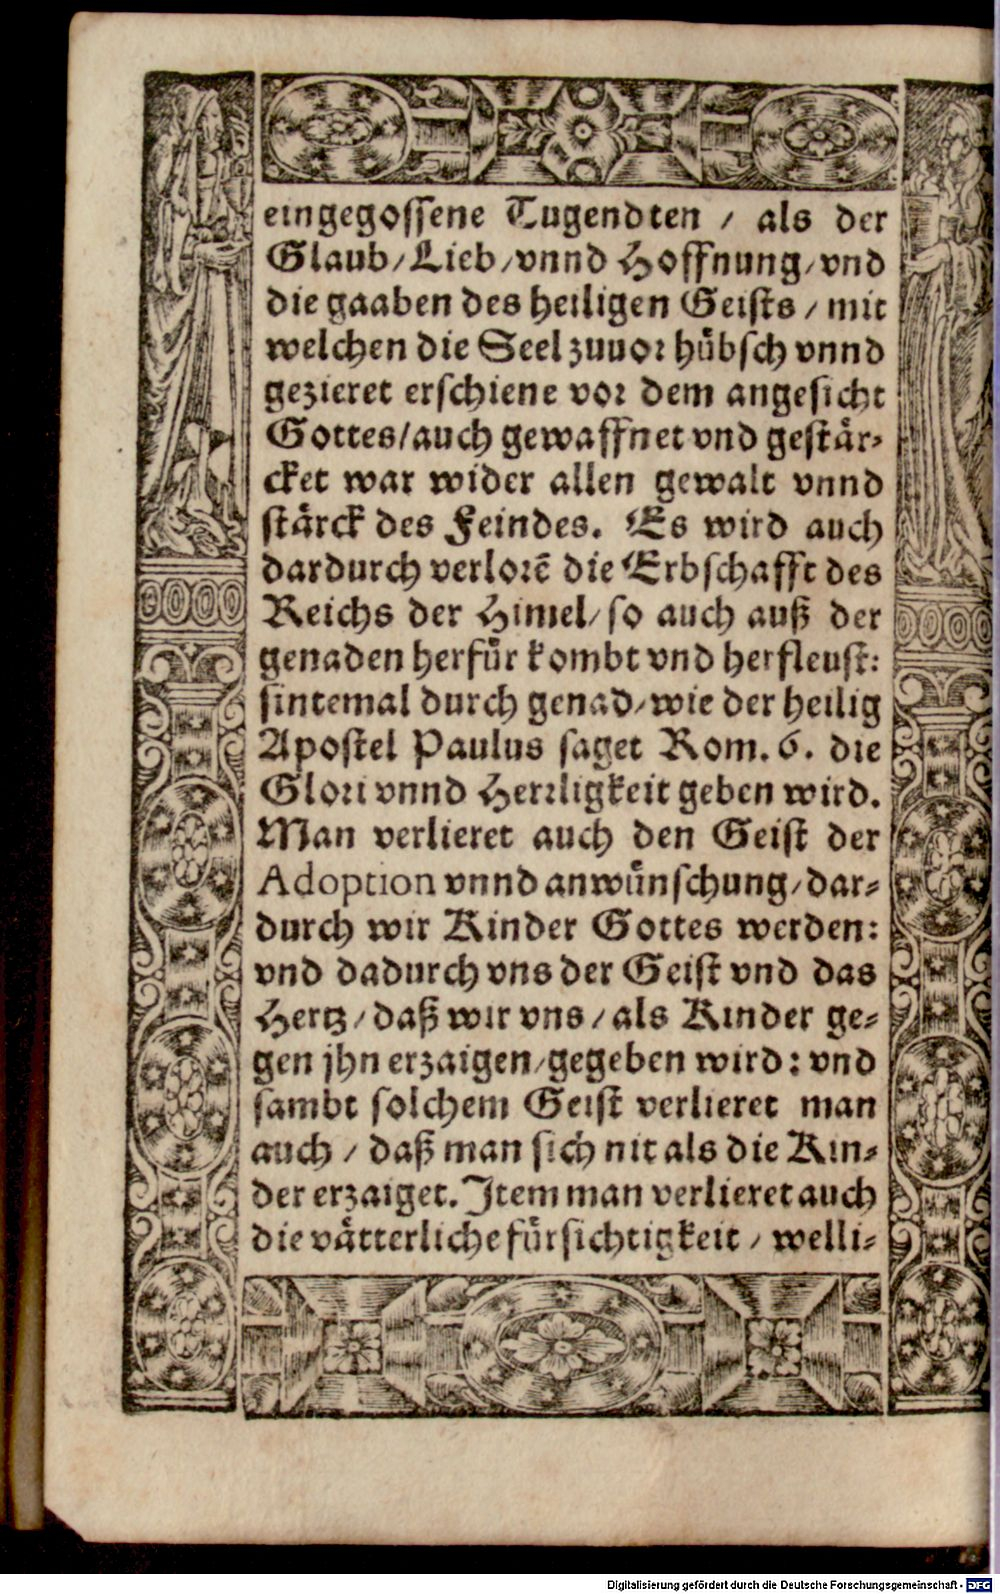 eingegossene Tugendten / als der
Glaub/Lieb/vnnd Hoffnung/vnd
die gaaben des heiligen Geists / mit
welchen die Seel zuuor hübsch vnnd
gezieret erschiene vor dem angesicht
Gottes/auch gewaffnet vnd gestär-
cket war wider allen gewalt vnnd
stärck des Feindes. Es wird auch
dardurch verlorē die Erbschafft des
Reichs der Himel/so auch auß der
genaden herfür kombt vnd herfleust:
sintemal durch genad/wie der heilig
Apostel Paulus saget Rom. 6. die
Glori vnnd Herrligkeit geben wird.
Man verlieret auch den Geist der
Adoption vnnd anwünschung/dar-
durch wir Kinder Gottes werden:
vnd dadurch vns der Geist vnd das
Hertz/daß wir vns/als Kinder ge-
gen jhn erzaigen/gegeben wird: vnd
sambt solchem Geist verlieret man
auch / daß man sich nit als die Kin-
der erzaiget. Item man verlieret auch
die vätterliche fürsichtigkeit / welli-
Digitalisierung gefördert durch die Deutsche Forschungsgemeinschaft - DFG